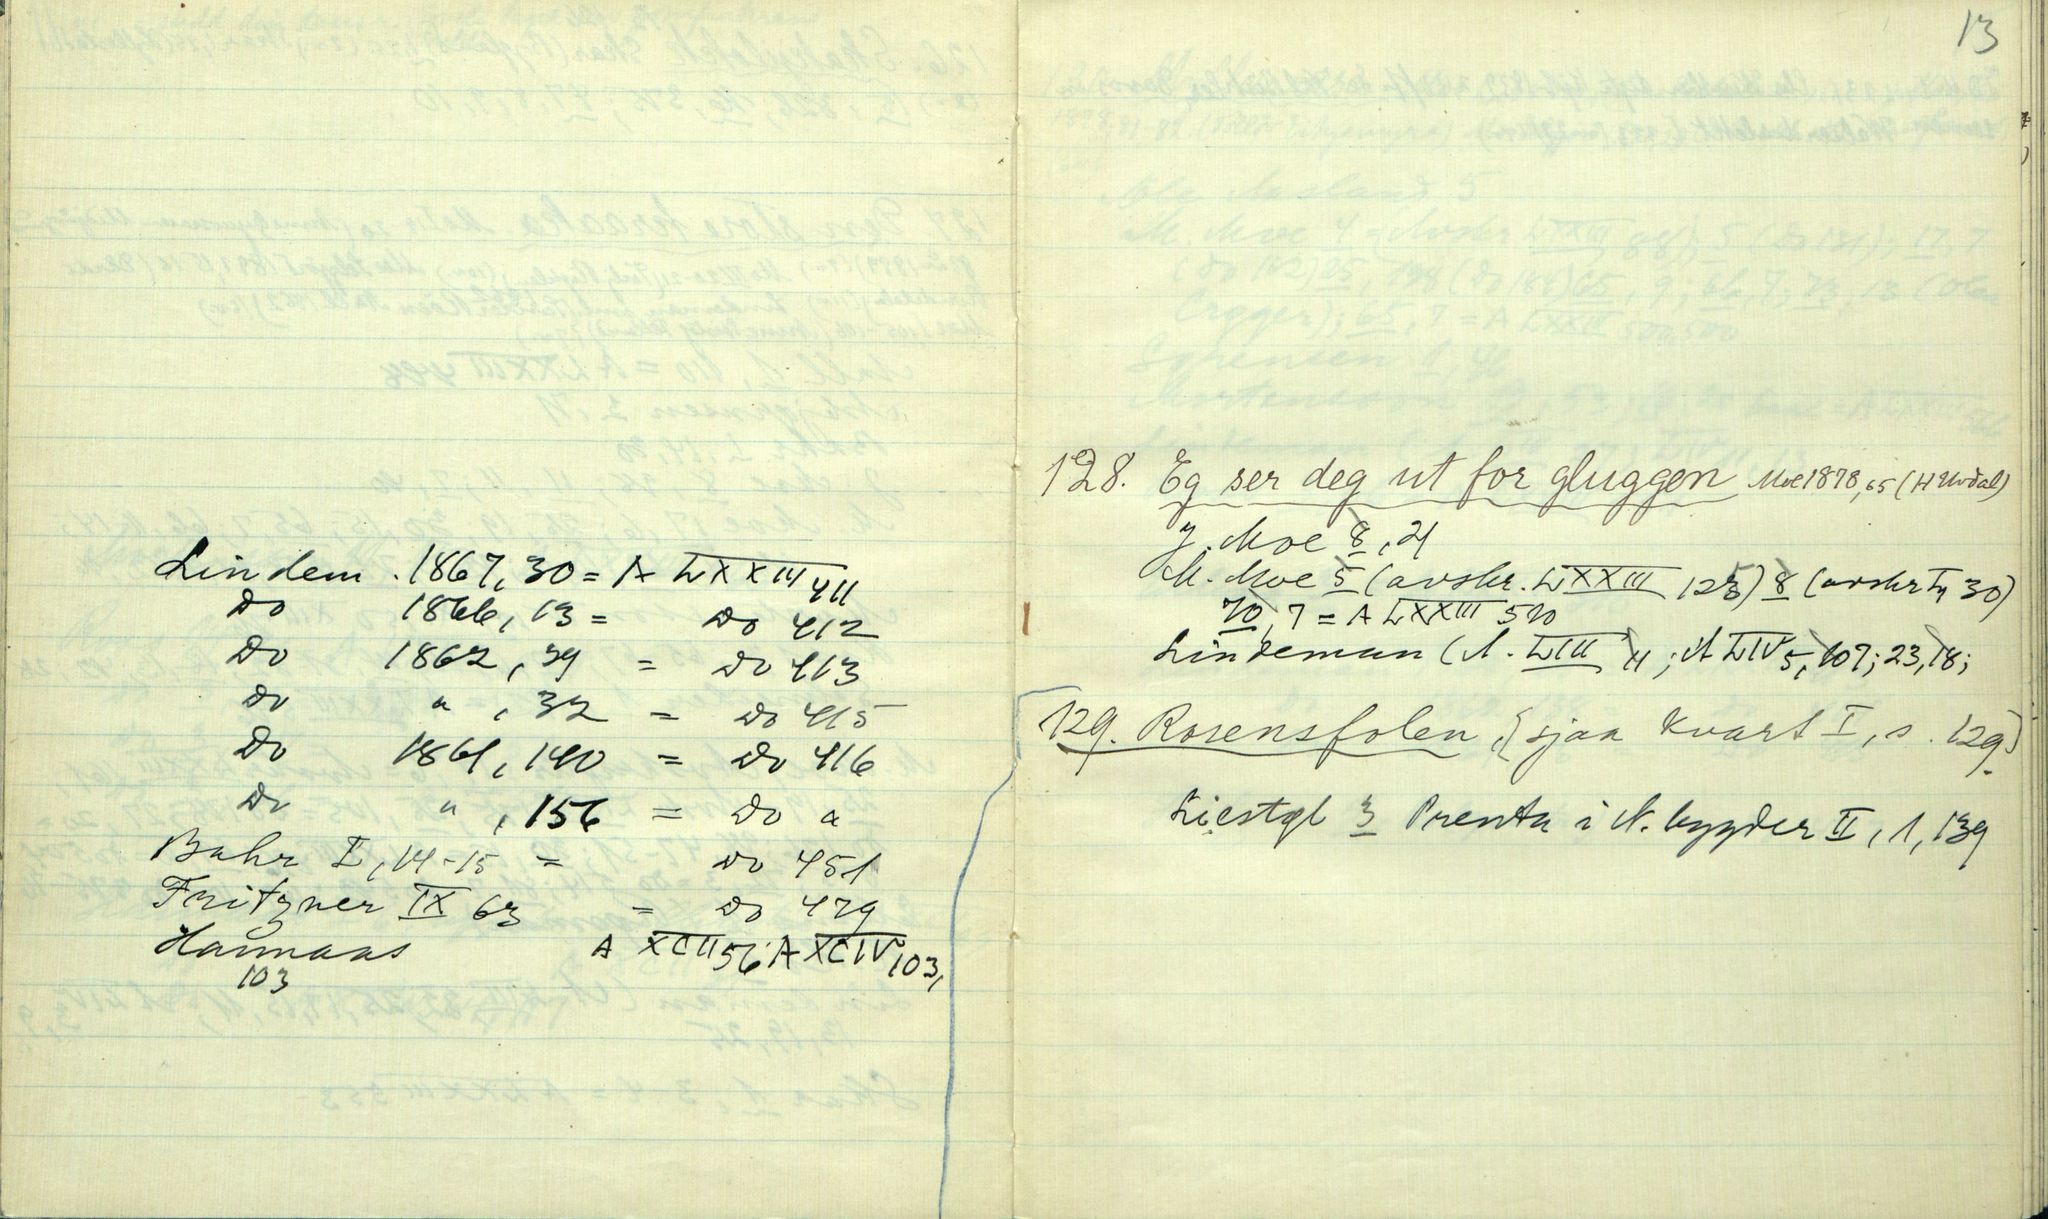 Lindem. 1867, 30 = A LXXIII 411
Do 1866, 13 = Do 412
Do 1862, 29 = Do 413
Do " , 32 = Do 415
Do 1861, 140 = Do 416
Do " , 156 = Do "
Bahr I, 14-15 = Do 451
Fritzner IX 63 = Do 479
Hannaas A XCII 56; A XCIV 103,
103
13
128. Eg ser deg ut for gluggen Moe 1878, 65 (H Urdal)
J. Moe 8, 21
M. Moe 5 (avskr. LXXIII 123) 8 (avskr 30)
70, 7 = A LXXIII 520
Lindeman (A. LIII 11; A LIV 5, 107; 23, 18;
129. Rosensfolen, (sjaa Kvart I, s. 129)
Liestøl 3 Prenta i N. bygder II, 1, 139